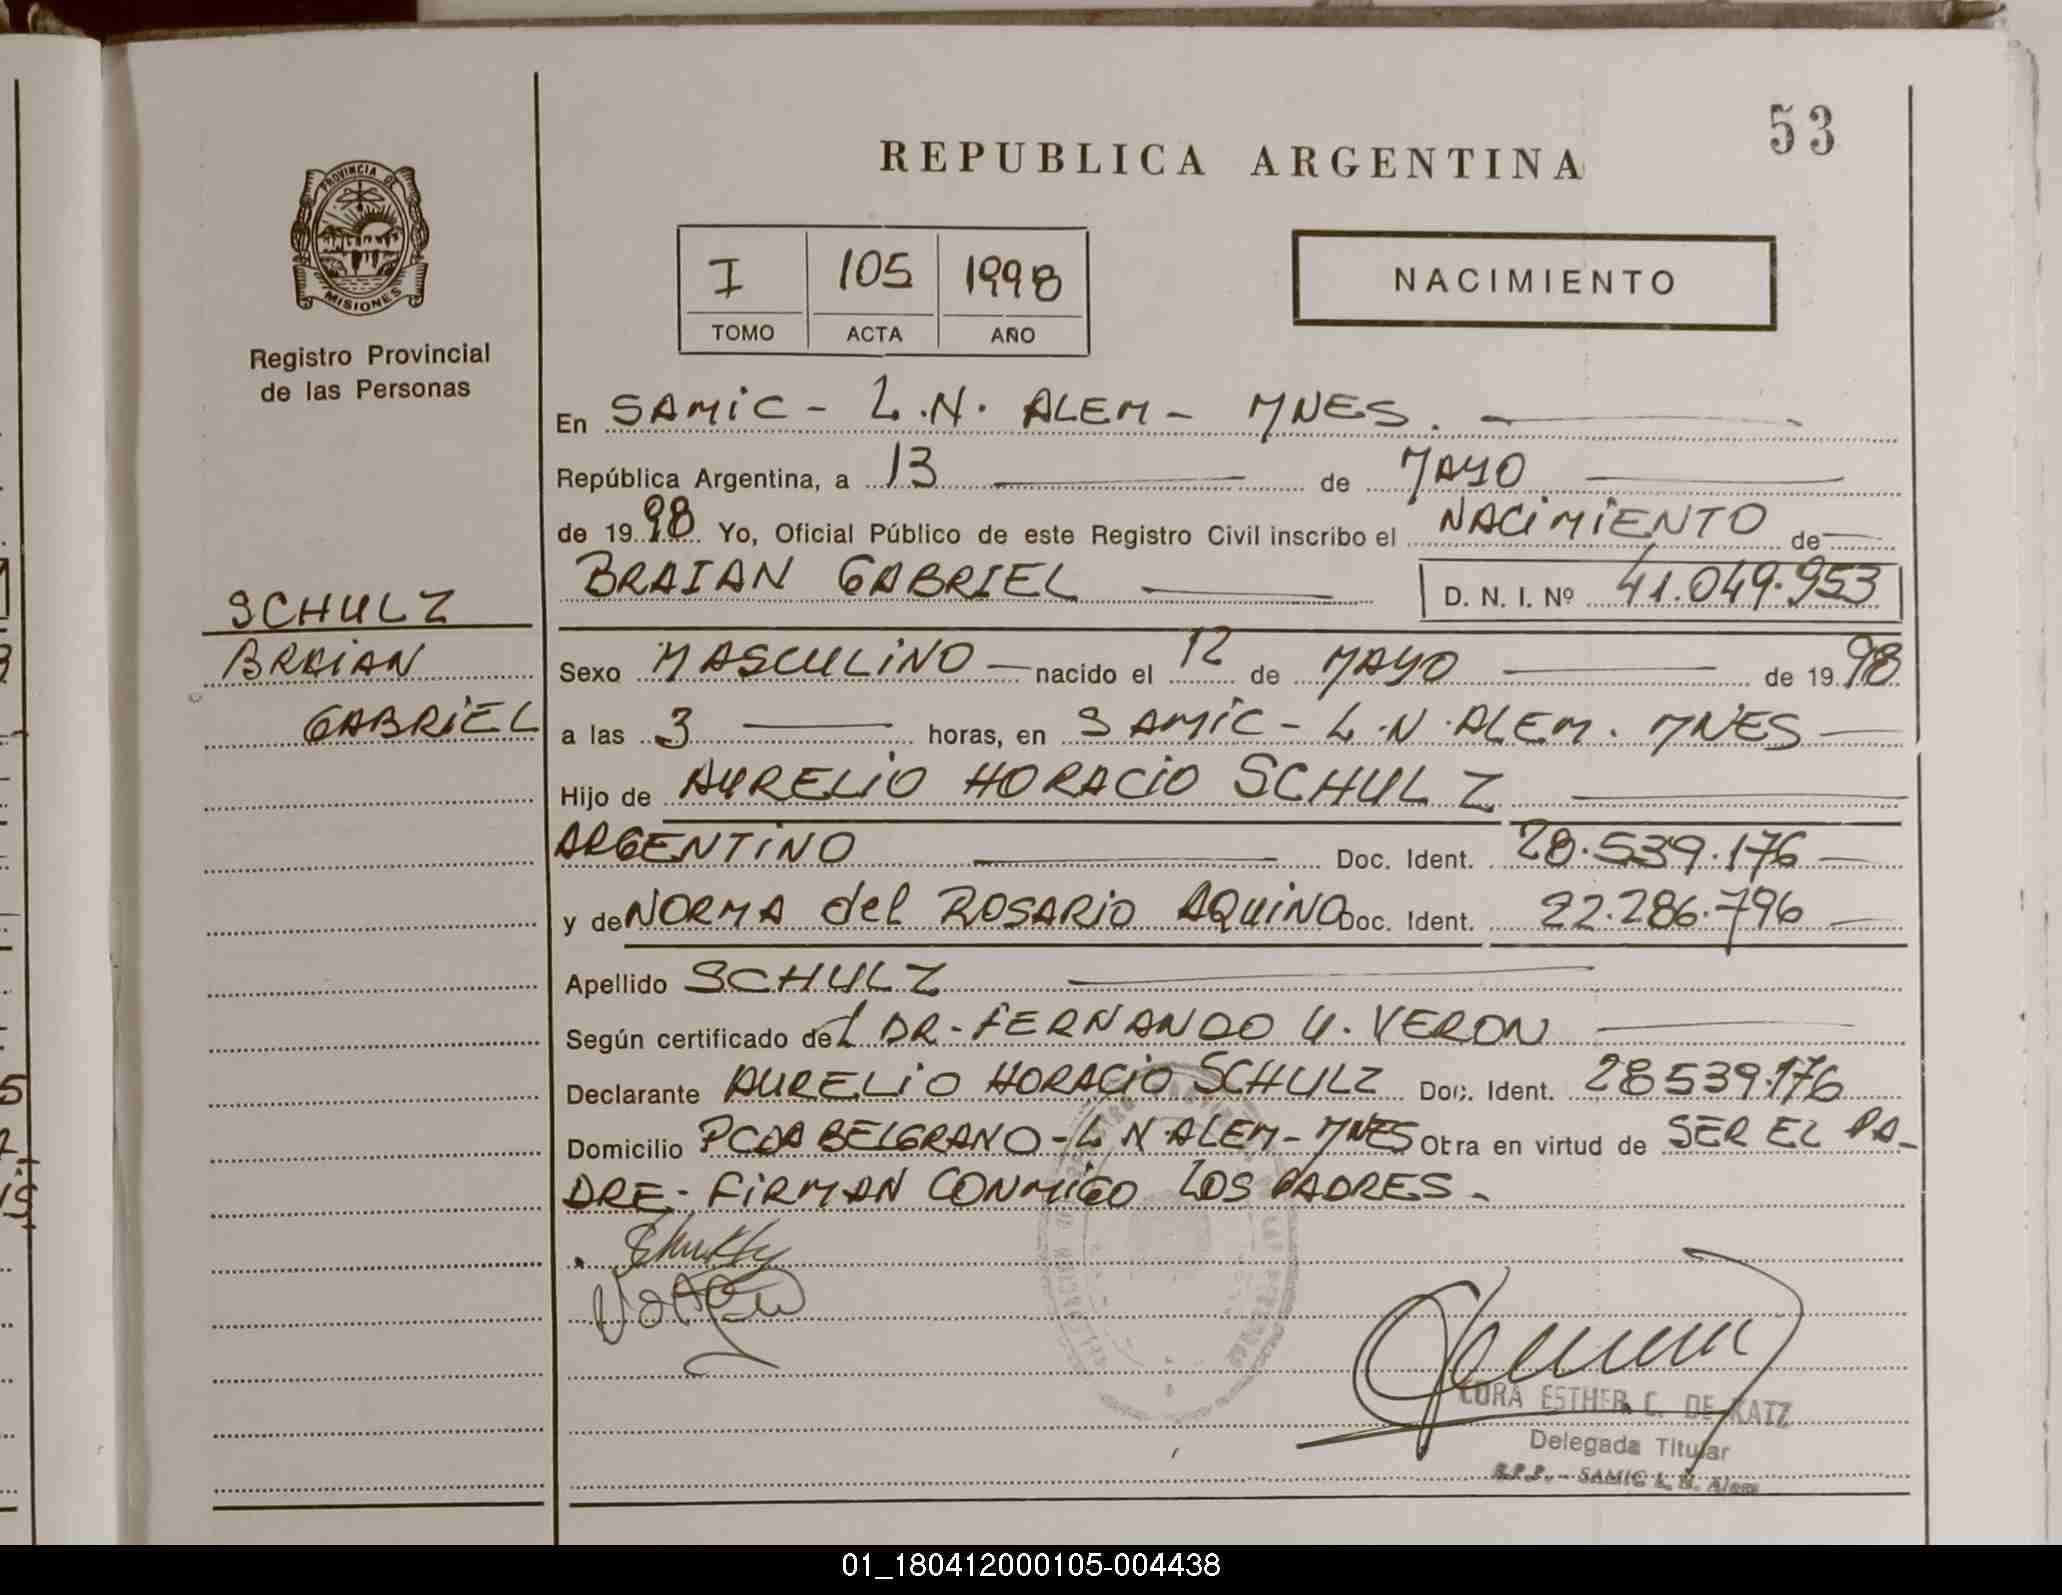 53
REPUBLICA ARGENTINA
PROVINCIA DE
MISIONES
Registro Provincial
de las Personas
I 105 1998
TOMO ACTA AÑO
NACIMIENTO
En SAMIC - L.N. ALEM - MNES.
República Argentina, a 13 de MAYO
de 1998 Yo, Oficial Público de este Registro Civil inscribo el NACIMIENTO de
BRAIAN GABRIEL D. N. I. Nº 41.049.953
SCHULZ
BRAIAN
GABRIEL
Sexo MASCULINO nacido el 12 de MAYO de 1998
a las 3 horas, en SAMIC - L.N. ALEM. MNES
Hijo de AURELIO HORACIO SCHULZ
ARGENTINO Doc. Ident. 28.539.176
y de NORMA del ROSARIO AQUINO Doc. Ident. 22.286.796
Apellido SCHULZ
Según certificado del DR. FERNANDO U. VERON
Declarante AURELIO HORACIO SCHULZ Doc. Ident. 28539.176
Domicilio PCDA BELGRANO - L N ALEM - MNES Otra en virtud de SER EL PA-
DRE - FIRMAN CONMIGO LOS PADRES.
CORA ESTHER C. DE KATZ
Delegada Titular
R.P.P. - SAMIC L. N. Alem
01_180412000105-004438